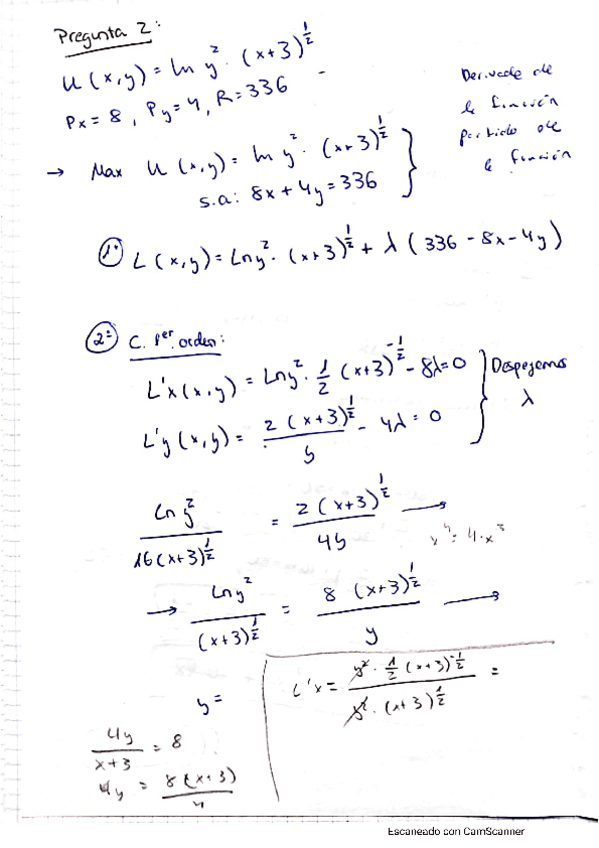 Pregunta 2:
U(x,y) = ln y² · (x+3)^½
Px = 8, Py = 4, R = 336
Derivada de
la función
partido de
la función
→ Max U(x,y) = ln y² · (x+3)^½
s.a: 8x + 4y = 336
1º L(x,y) = Ln y² · (x+3)^½ + λ (336 - 8x - 4y)
2º C. 1er. orden:
L'x(x,y) = Ln y² · 1/2 (x+3)^-½ - 8λ = 0
Despejamos
λ
L'y(x,y) = 2(x+3)^½ / y - 4λ = 0
Ln y² / 16(x+3)^½ = 2(x+3)^½ / 4y →
→ Ln y² / (x+3)^½ = 8 (x+3)^½ / y →
y =
L'x = y² · 1/2 (x+3)^-½ / y² · (x+3)^½ =
4y / x+3 = 8
4y = 8(x+3) / 4
Escaneado con CamScanner